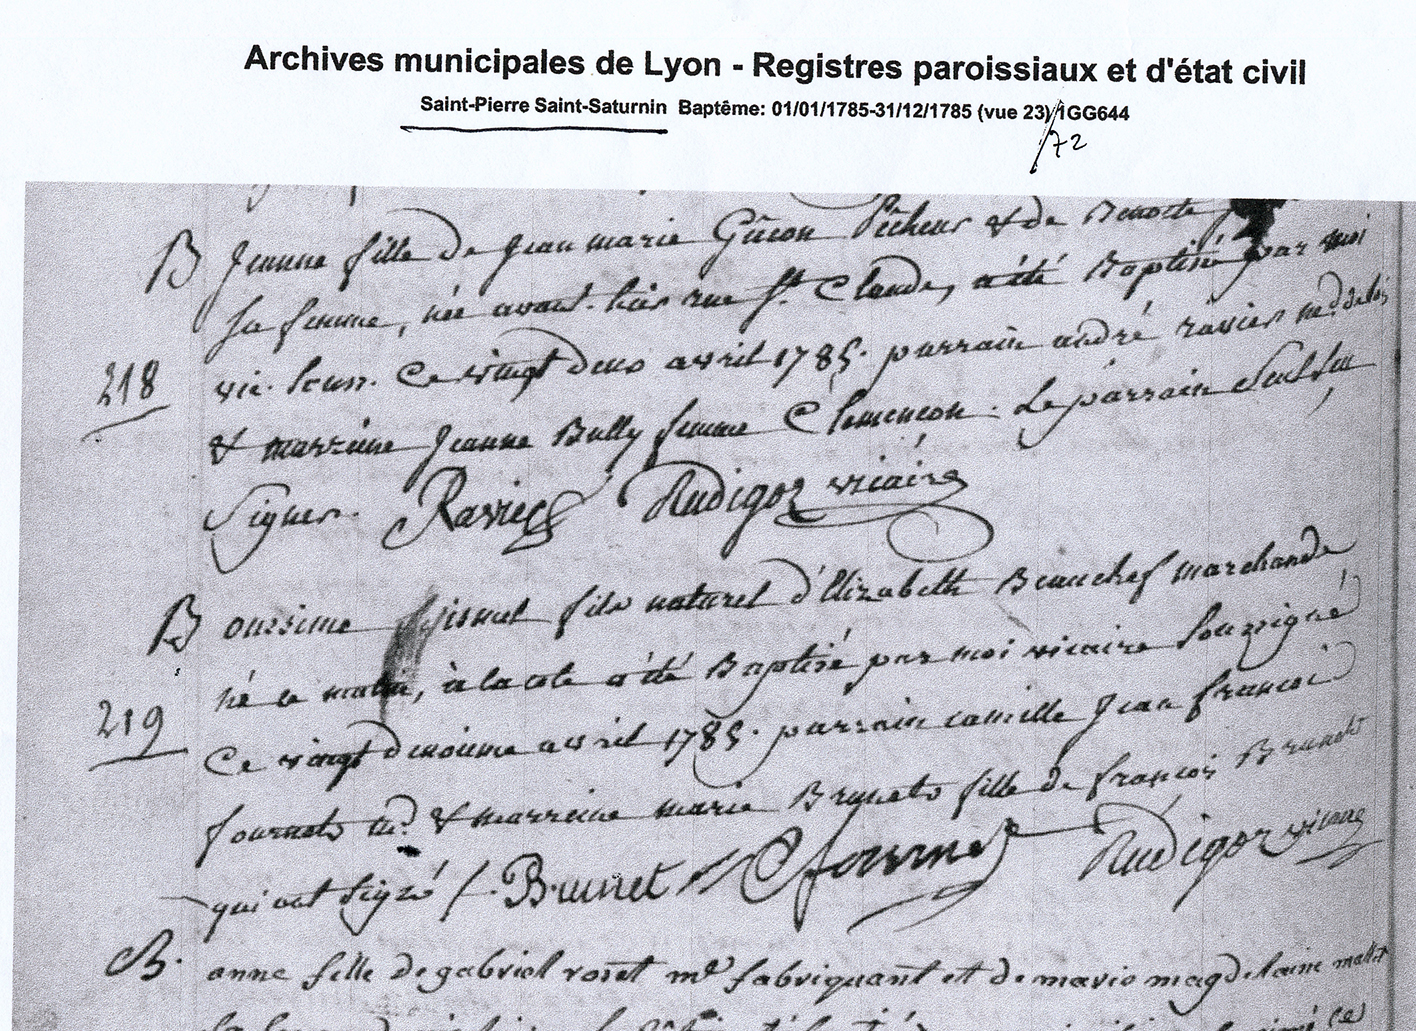 Archives municipales de Lyon - Registres paroissiaux et d'état civil
Saint-Pierre Saint-Saturnin Baptême: 01/01/1785-31/12/1785 (vue 23) 1GG644
/72
B Jeanne fille de Jean marie Gûcon Pêcheur & de Benoite
sa femme, née avant-hier rue St. Claude, a été Baptisé par moi
218 vic. souss. Ce vingt deux avril 1785. parrain andré ravier md. de bois
& marreine Jeanne Bully femme Clemencon. Le parrain Seul su
signer. Ravier Rudigoz vicaire
B onésime fils naturel d'Elizabeth Beauchef marchande
né ce matin, à la cote a été Baptisé par moi vicaire soussigné
219 Ce vingt deuxieme avril 1785. parrain camille Jean francois
fournet md. & marreine marie Brunet fille de françois Brunet
qui ont signé /. Brunet Cfournet Rudigoz vicaire
B. anne fille de gabriel roset md fabriquant et de marie magdelaine mallet